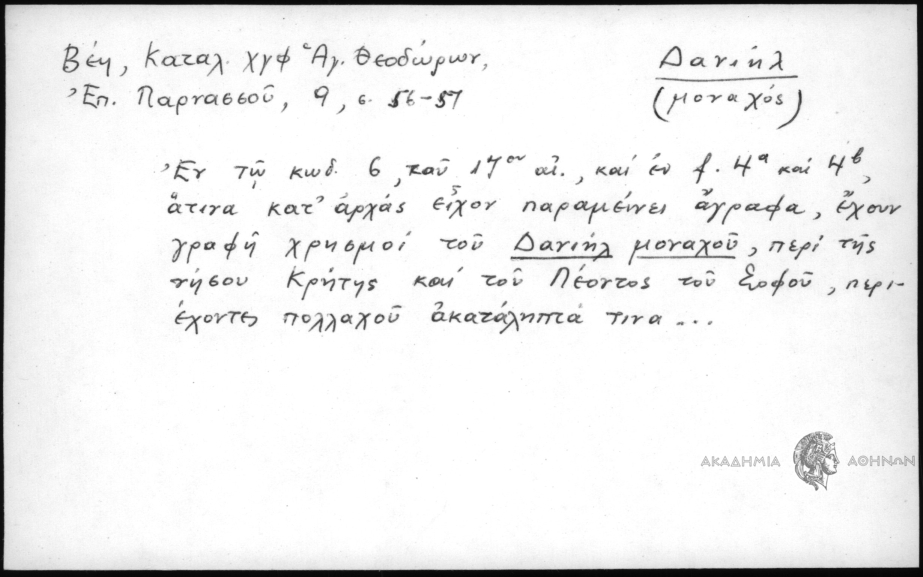 Βέη, Καταλ. χγφ Ἁγ. Θεοδώρων,
Ἐπ. Παρνασσοῦ, 9, σ. 56-57
Δανιήλ
(μοναχός)
Ἐν τῷ κωδ. 6, τοῦ 17ου αἰ., καί ἐν f. 4a καί 4b,
ἅτινα κατ' ἀρχάς εἶχον παραμείνει ἄγραφα, ἔχουν
γραφῆ χρησμοί τοῦ Δανιήλ μοναχοῦ, περί τῆς
νήσου Κρήτης καί τοῦ Λέοντος τοῦ Σοφοῦ, περι-
έχοντες πολλαχοῦ ἀκατάληπτά τινα ...
ΑΚΑΔΗΜΙΑ ΑΘΗΝΩΝ